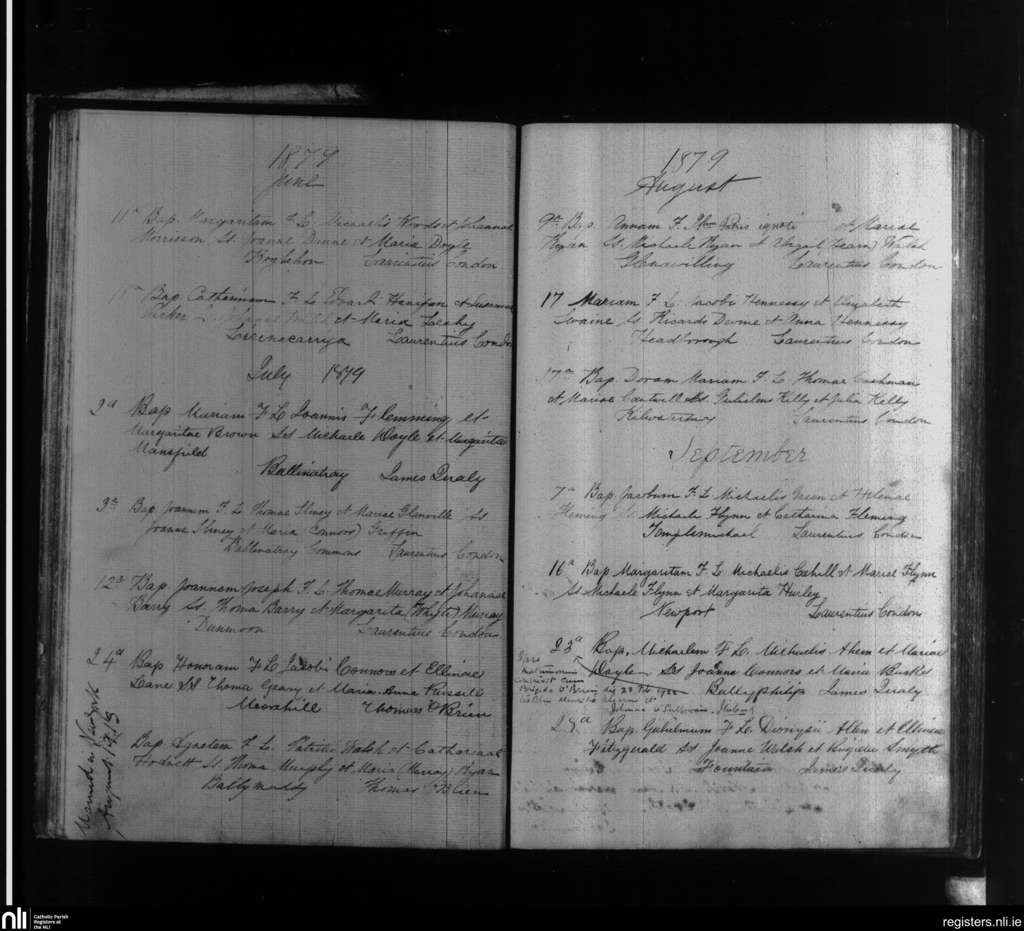 1879
June
11 Bap. Margaritam F. L. Michaelis Woods et Johannah
Morrisson Ss. Joanne Dunne et Maria Doyle
Laurentius Condon
Bap. Catherinam F. L. Hanifan et
et Maria Leahy
Laurentius Condon
July 1879
2a Bap Mariam F L Joannis Flemming et
Margaritae Brown Ss Michaele Doyle et Margarita
Mansfield
Ballinatray James Queally
3a Bap Joannem F. L. Thomae Sliney et Mariae Glanville Ss
Joanne Sliney et Maria (Connors) Griffin
Ballinatray Commons Laurentius Condon
12a Bap. Joannem Joseph F. L. Thomae Murray et Johannae
Barry Ss. Thoma Barry et Margarita (Whyte) Murray
Dunmoon Laurentius Condon
24a Bap Honoram F L Jacobi Connors et Ellinae
Lane Ss Thoma Geary et Maria Anna Russell
Moorehill Thomas O'Brien
Married in Newyork
August 1913
Bap. Agnetem F. L. Patricii Walsh et Catharinae
Hodnett Ss. Thoma Murphy et Maria (Murray) Ryan
Ballymuddy Thomas O'Brien
1879
August
9a Bap. Annam F. Patris ignoti et Mariae
Ryan Ss. Michaele Ryan et Walsh
Glenawilling Laurentius Condon
17 Mariam F. L. Jacobi Hennessy et Elizabeth
Swaine Ss Ricardo Devine et Anna Hennessy
Headborough Laurentius Condon
17a Bap. Doram Mariam F. L. Thomae Cashman
et Mariae Cantwill Ss. Gulielmo Kelly et Julia Kelly
Laurentius Condon
September
7a Bap. Jacobum F. L. Michaelis Green et Helenae
Fleming Ss Michaele Flynn et Catharina Fleming
Templemichael Laurentius Condon
16a Bap Margaritam F. L. Michaelis Cahill et Mariae Flynn
Ss Michaele Flynn et Margarita Hurley
Newport Laurentius Condon
23a Bap. Michaelem F. L. Michaelis Ahern et Mariae
Doyle Ss Joanne Connors et Maria Burke
Ballyphilip James Queally
Matrimonium
contraxit cum
Brigida O'Brien die 28 Feb
28a Bap. Gulielmum F. L. Dionysii Allen et Ellinae
Fitzgerald Ss Joanne Walsh et Smyth
Fountain James Queally
nli
Catholic Parish
Registers at
the NLI
registers.nli.ie